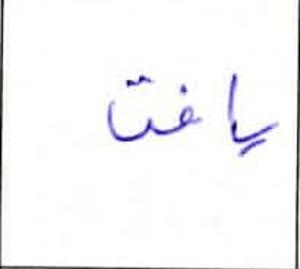 یافت